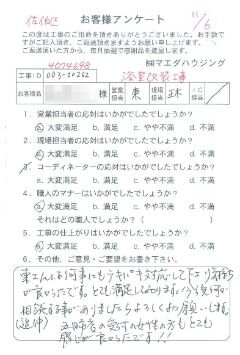 佐伯区
お客様アンケート
11/6
この度は工事のご用命を頂きありがとうございました。お手数で
すがご記入頂き、ご返送頂きますようお願い申し上げます。
ご返送頂いた方から、毎月抽選で感謝品を進呈します。
4024698
㈱マエダハウジング
工事ID
003-
浴室改装工事
お客様名
様
営業担当
東
現場担当
IC担当
1. 営業担当者の応対はいかがでしたでしょうか?
a. 大変満足 b. 満足 c. やや不満 d. 不満
2. 現場担当者の応対はいかがでしたでしょうか?
a. 大変満足 b. 満足 c. やや不満 d. 不満
3. コーディネーターの応対はいかがでしたでしょうか?
a. 大変満足 b. 満足 c. やや不満 d. 不満
4. 職人のマナーはいかがでしたでしょうか?
a. 大変満足 b. 満足 c. やや不満 d. 不満
それはどの職人でしょうか? (
5. 工事の仕上がりはいかがでしたでしょうか?
a. 大変満足 b. 満足 c. やや不満 d. 不満
6. その他、ご意見・ご要望をお書き下さい。
東さんが何事にもテキパキ対応して下さり気持ち
が良かったです。とても満足しております。今後何か
相談する事がありましたらよろしくお願いします。
(追伸)
の受付の女性の方もとても
感じが良かったです!!